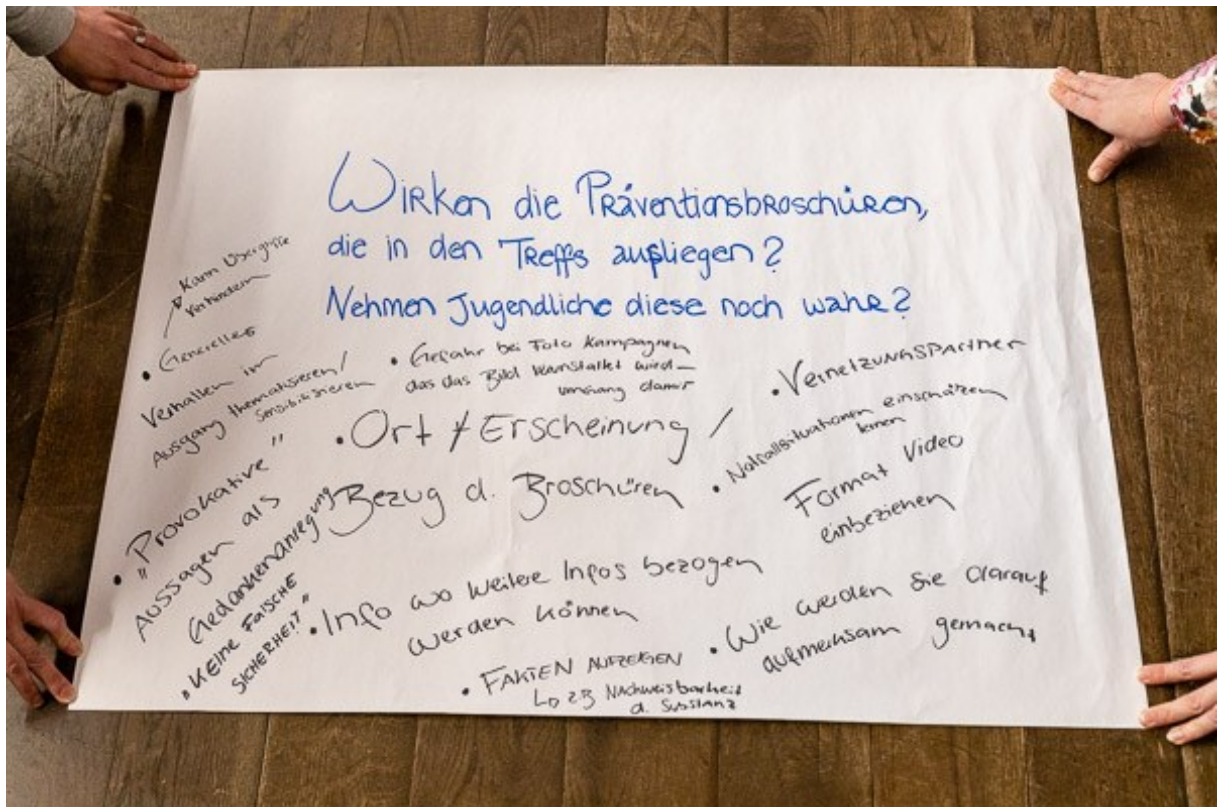 Wirken die Präventionsbroschüren,
die in den Treffs aufliegen?
Nehmen Jugendliche diese noch wahr?
Kann Übergriffe
verhindern
• Generelles
Verhalten im
Ausgang thematisieren/
sensibilisieren
• Gefahr bei Foto Kampagnen
das das Bild verunstaltet wird –
umgang damit
• Vernetzungspartner
• Ort / Erscheinung /
Bezug d. Broschüren
• Notfallsituationen einschätzen
lernen
Format Video
einbeziehen
• "Provokative"
Aussagen als
Gedankenanregung
"KEINE FALSCHE
SICHERHEIT"
• Info wo weitere Infos bezogen
werden können
• Wie werden Sie darauf
aufmerksam gemacht
• FAKTEN AUFZEIGEN
↳ z.B Nachweisbarkeit
d. Substanz